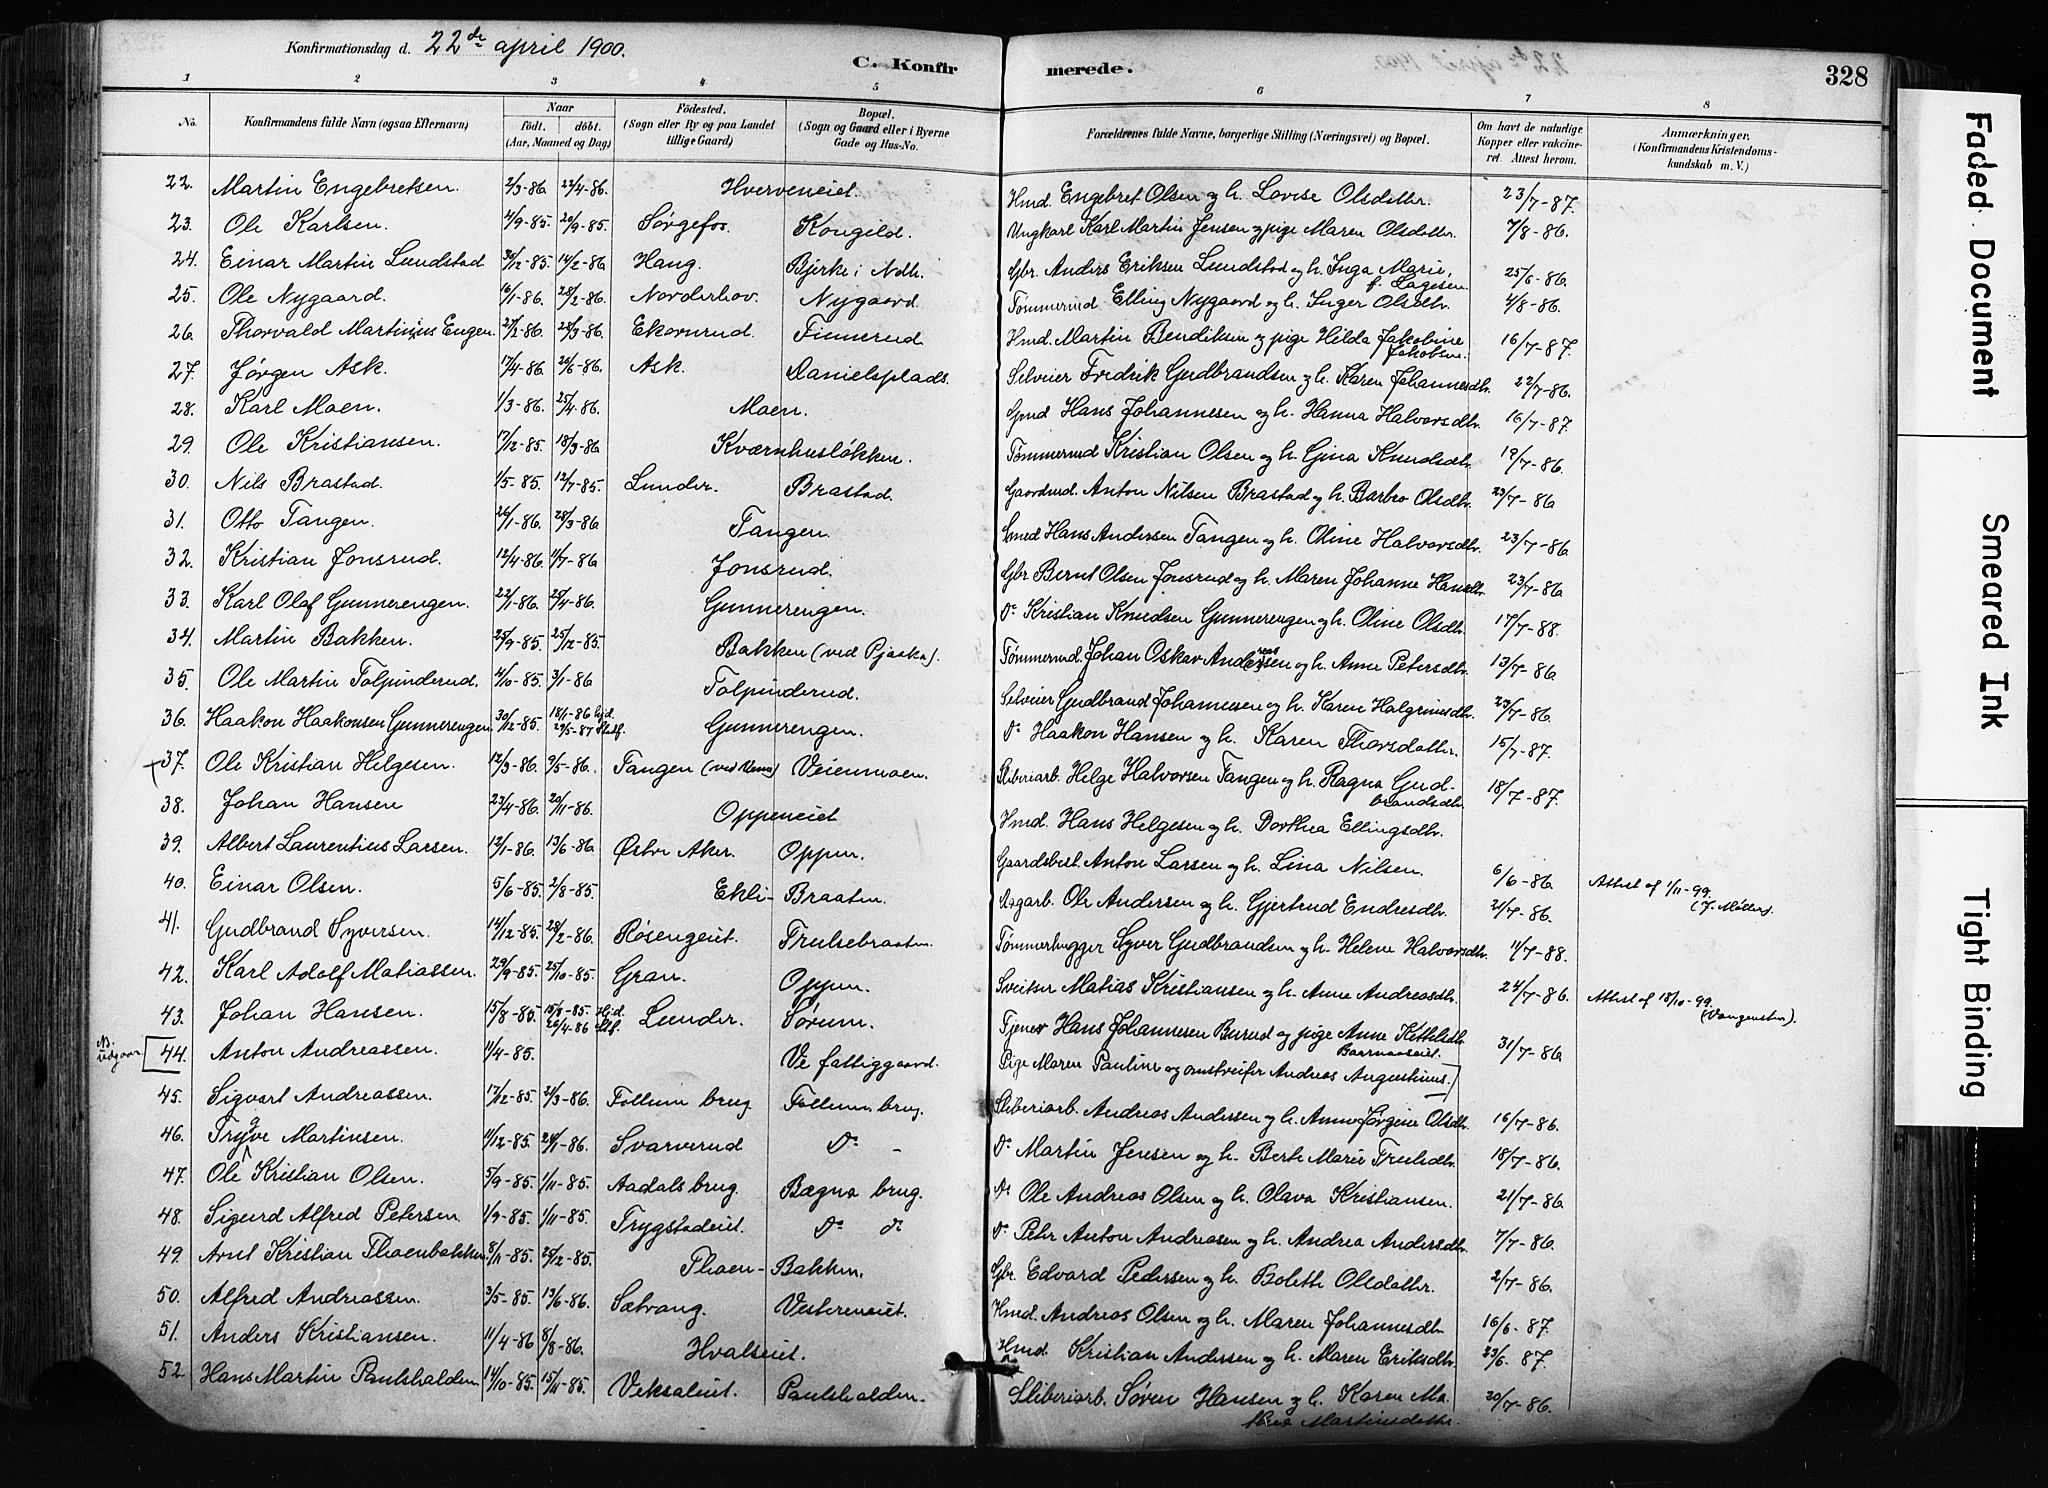 Konfirmationsdag d. 22de april 1900.
C. Konfirmerede.
328
1 2 3 4 5 6 7 8
No.
Konfirmandens fulde Navn (ogsaa Efternavn)
Naar
födt. döbt.
(Aar, Maaned og Dag)
Födested.
(Sogn eller By og paa Landet
tillige Gaard)
Bopæl.
(Sogn og Gaard eller i Byerne
Gade og Hus-No.
Forældrenes fulde Navne, borgerlige Stilling (Næringsvei) og Bopæl.
Om havt de naturlige
Kopper eller vakcine-
ret. Attest herom.
Anmærkninger.
(Konfirmandens Kristendoms-
kundskab m. V.)
22. Martin Engebretsen. 2/3-86. 22/4-86. Hverveneiet Hmd. Engebret Olsen og h. Lovise Olsdettr. 23/7-87.
23. Ole Karlsen. 4/9-85. 20/9-85. Sørgefos. Kongild. Ungkarl Karl Martin Jensen og pige Maren Olsdattr. 7/8-86.
24. Einar Martin Lundstad 30/12-85. 14/2-86 Haug. Bjerke i Ndh. Gbr. Anders Eriksen Lundstad og h. Inga Marie, 25/6-86.
f. Lagesen.
25. Ole Nygaard. 16/1-86. 28/2-86. Norderhov. Nygaard. Tømmermd Elling Nygaard og h. Inger Olsdtr. 4/8-86.
26. Thorvald Martinius Engen. 27/2-86. 28/3-86. Ekornrud. Finnerud. Hmd. Martin Bendiksen og pige Hilda Jakobine 16/7-87.
Jakobsen.
27. Jørgen Ask. 17/4-86. 20/6-86. Ask. Danielsplads. Selveier Fredrik Gudbrandsen og h. Karen Johannesdtr. 22/7-86.
28. Karl Moen. 1/3-86. 25/4-86. Moen. Gmd Hans Johannesen og h. Hanna Halvorsdtr. 16/7-87.
29. Ole Kristiansen. 17/12-85. 18/3-86 Kværnhusløkken. Tømmermd Kristian Olsen og h. Gina Knudsdtr. 19/7-86.
30. Nils Brastad. 1/5-85. 12/7-85. Lunder. Brastad. Gaardmd. Anton Nilsen Brastad og h. Barbro Olsdtr. 23/7-86
31. Otto Tangen. 26/1-86. 28/3-86. Tangen. Smed Hans Andersen Tangen og h. Oline Halvorsdtr. 23/7-86
32. Kristian Jonsrud. 12/4-86. 11/7-86 Jonsrud. Gbr Bernt Olsen Jonsrud og h. Maren Johanne Hansdtr. 23/7-86
33. Karl Olaf Gunnerengen. 22/1-86. 25/4-86. Gunnerengen. Do Kristian Knudsen Gunnerengen og h. Oline Olsdtr. 17/7-88.
34. Martin Bakken. 25/9-85. 25/12-85. Bakken (ved Pjaaka). Tømmermd. Johan Oskar Andersen og h. Anne Petersdtr. 13/7-86
35. Ole Martin Tolpinderud. 4/10-85. 3/1-86 Tolpinderud. Selveier Gudbrand Johannesen og h. Karen Halgrimsdtr. 23/7-86.
36. Haakon Haakonsen Gunnerengen. 30/12-85. 18/1-86 hjd.
29/5-87 Stadf. Gunnerengen. Do Haakon Hansen og h. Karen Thorsdattr. 15/7-87.
37. Ole Kristian Helgesen. 12/3-86. 9/5-86. Tangen (ved Veme) Veienmoen. Sliberiarb. Helge Halvorsen Tangen og h. Ragna Gud- 18/7-87.
brandsdtr.
38. Johan Hansen 23/4-86. 20/11-86. Oppeneiet Hmd. Hans Helgesen og h. Dorthea Ellingsdtr.
39. Albert Laurentius Larsen. 12/1-86. 13/6-86. Østre Aker. Oppen. Gaardsbest. Anton Larsen og h. Lina Nilsen. 6/6-86. Attest af 1/11-99.
(J. Møller).
40. Einar Olsen. 5/6-85. 2/8-85. Ekli-Braaten. Sagarb. Ole Andersen og h. Gjertrud Endresdtr. 21/7-86.
41. Gudbrand Syversen. 14/12-85. 28/2-86. Røsengeiet. Trulsebraaten. Tømmerhugger Syver Gudbrandsen og h. Helene Halvorsdtr. 11/7-88.
42. Karl Adolf Matiassen. 29/9-85. 25/10-85. Gran. Oppen. Sveitser Matias Kristiansen og h. Anne Andreasdtr. 24/7-86. Attest af 18/10-99.
(Vangensten).
43. Johan Hansen. 15/8-85. 15/8-85. Hjd.
26/4-86 Stf. Lunder. Sørum. Tjener Hans Johannesen Burud og pige Anne Kettelsdtr.
Baarnaaseiet. 31/7-86
NB. udgaar 44. Anton Andreassen. 11/4-85. Ve fattiggaard. Pige Maren Pauline og omstreifer Andreas Augustinus.
45. Sigvart Andreassen. 17/12-85. 21/3-86. Follum brug. Follum brug. Sliberiarb. Andreas Andersen og h. Anne Jørgine Olsdtr. 16/7-86.
46. Trygve Martinsen. 11/12-85. 24/1-86. Svarverud Do - Do Martin Jensen og h. Berte Marie Trulsdtr. 18/7-86.
47. Ole Kristian Olsen. 5/9-85. 1/11-85. Aadals brug. Bægna brug. Do Ole Andreas Olsen og h. Olava Kristiansen. 21/7-86
48. Sigurd Alfred Petersen. 1/9-85. 1/11-85. Trygstadeiet. Do do Do Peter Anton Andreasen og h. Andrea Andersdtr. 7/7-86.
49. Arnt Kristian Thoenbakken. 8/11-85. 25/12-85. Thoen-Bakken. Gbr. Edvard Pedersen og h. Bolette Olsdattr. 2/7-86.
50. Alfred Andreassen. 3/5-85. 13/6-86. Sætrang. Vestereneiet. Hmd. Andreas Olsen og h. Maren Johannesdtr. 16/6-87.
51. Anders Kristiansen. 11/4-86 8/8-86. Hvalseiet. Hmd. Kristian Andersen og h. Maren Eriksdtr. 23/6-87.
52. Hans Martin Paulshalden 14/10-85. 15/11-85. Veksaleiet. Paulshalden. Sliberiarb. Søren Hansen og h. Karen Ma- 20/7-86.
thea Martinsdattr.
Faded Document
Smeared Ink
Tight Binding